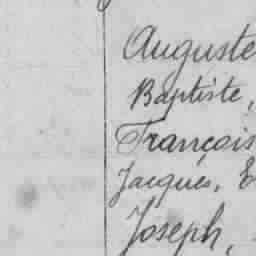 Auguste
Baptiste,
François
Jacques, E
Joseph,